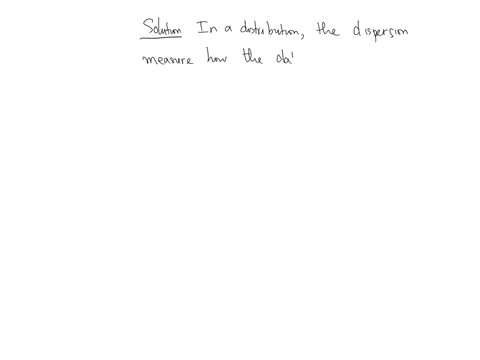 Solution In a distribution, the dispersion
measure how the dat